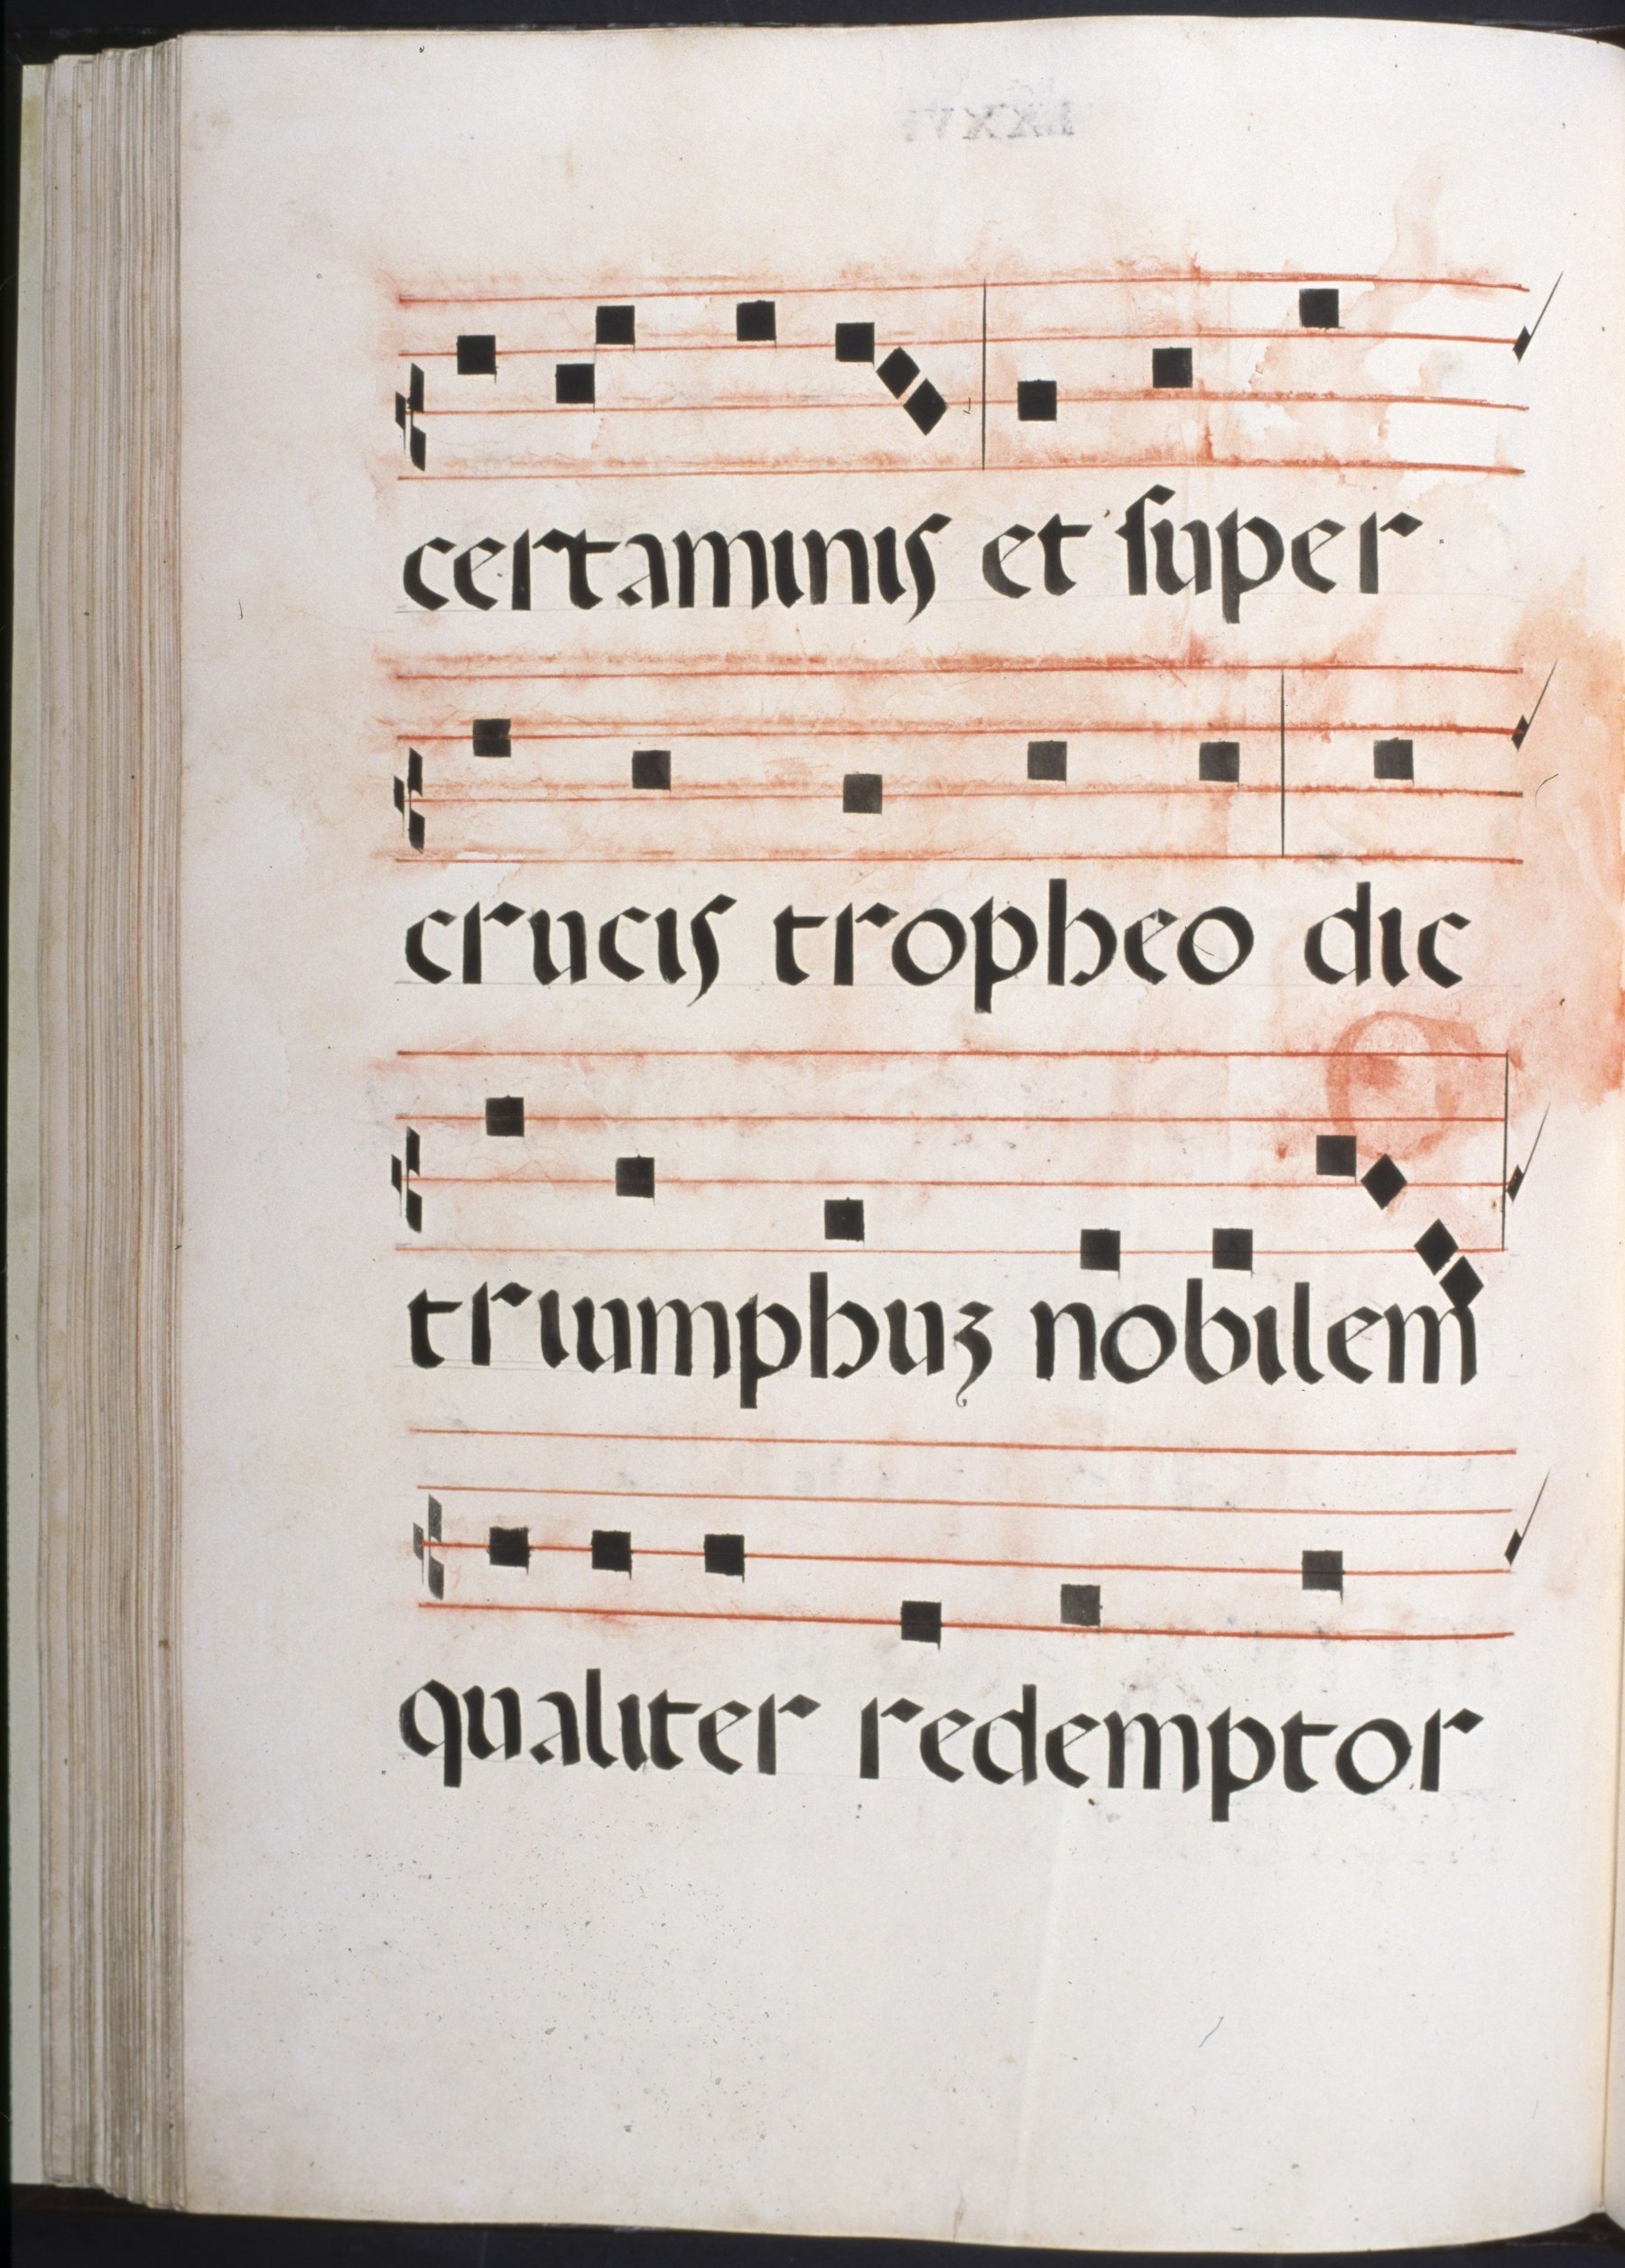 certaminis et super
crucis tropheo dic
triumphuz nobilem
qualiter redemptor